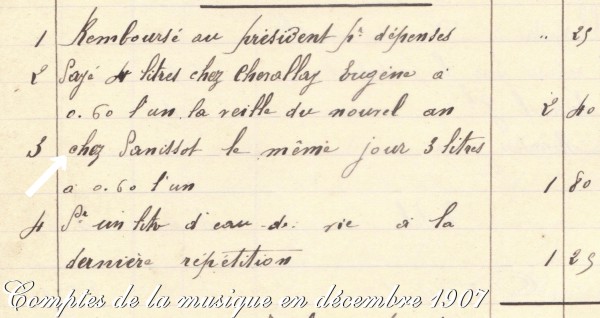 1 Remboursé au président pr dépenses " 25
2 Payé 4 litres chez Chevallay Eugène à
0.60 l'un la veille du nouvel an 2 40
3 chez Panissot le même jour 3 litres
à 0.60 l'un 1 80
4 Pr un litre d'eau-de-vie à la
dernière répétition 1 25
Comptes de la musique en décembre 1907